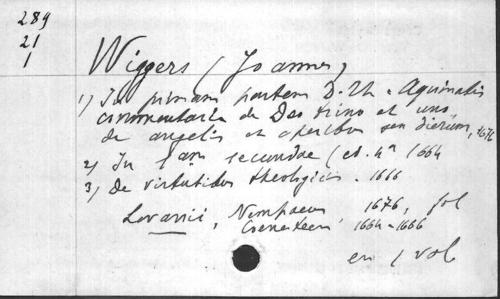 289
21
1
Wiggers (Joannes)
1) In primam partem D. Th. Aquinatis
commentaria de Deo trino et uno
de angelis et operibus sex dierum, 1676
2) In secundae ( et 4a 1664
3) De virtutibus theologicis. 1666
Lovanii, Nempaeus 1676, fol
Coenesteen 1664-1666
en 1 vol